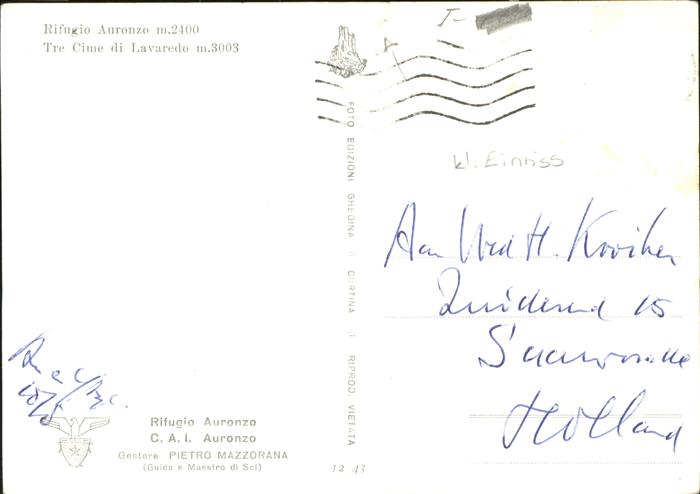 Rifugio Auronzo m.2400
Tre Cime di Lavaredo m.3003
FOTO EDIZIONI GHEDINA :: CORTINA :: RIPROD. VIETATA
kl. Einriss
Aan H. Kooiker
15
Holland
Rifugio Auronzo
C. A. I. Auronzo
Gestore PIETRO MAZZORANA
(Guida e Maestro di Sci)
12 43